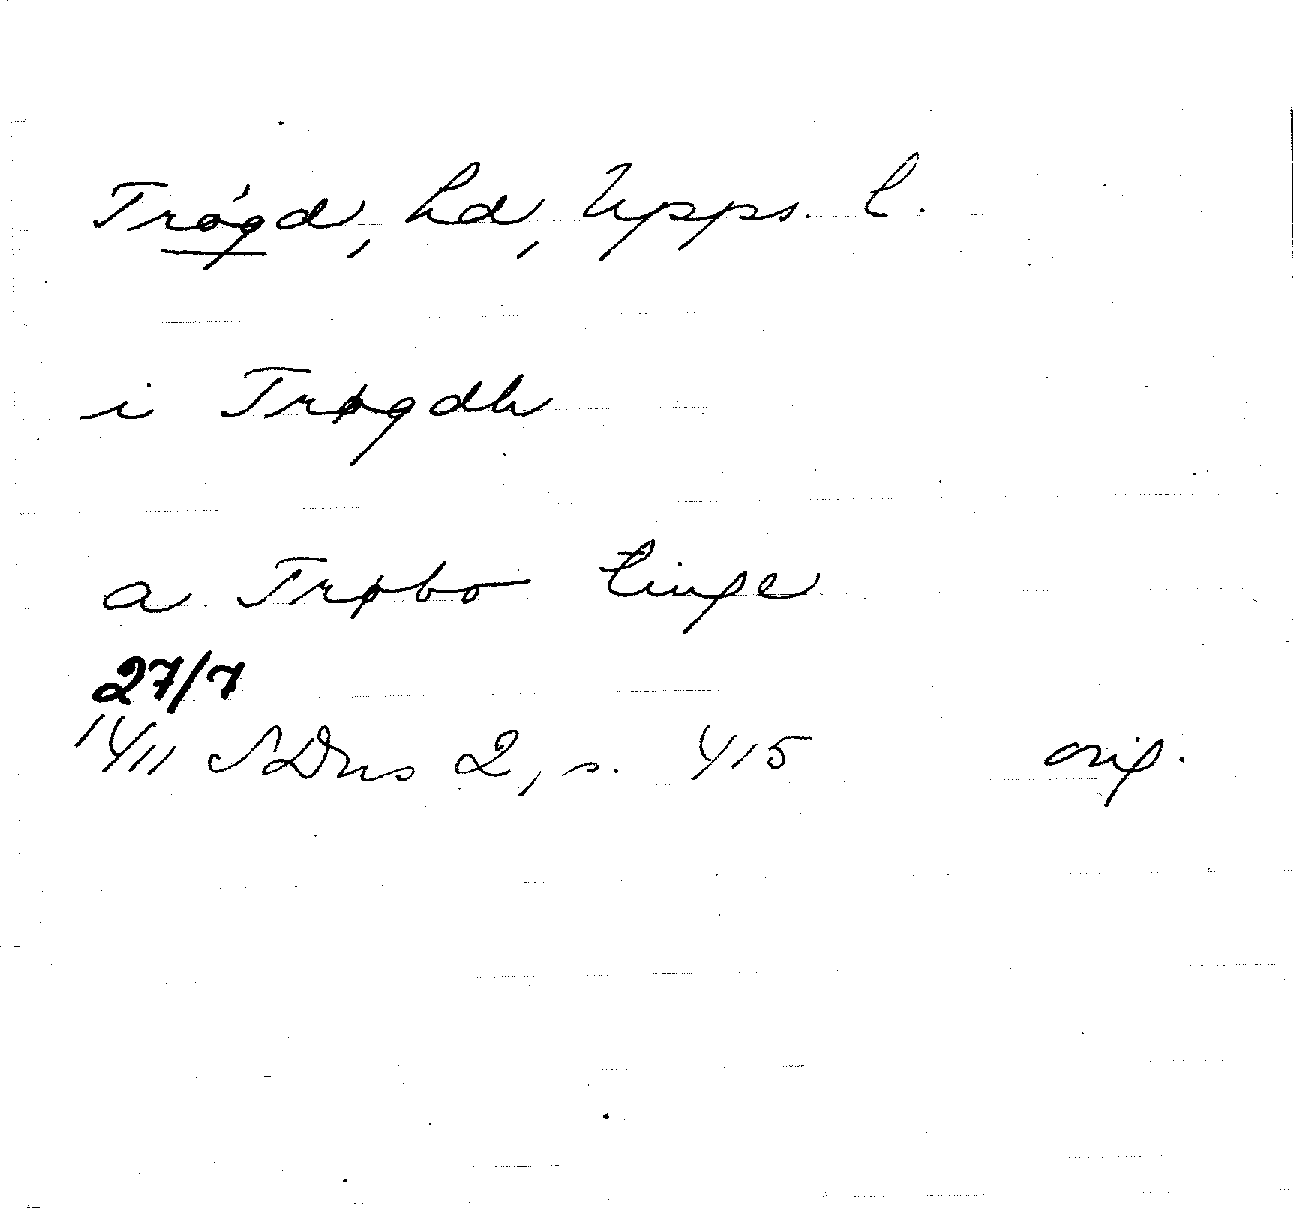 Trögd, hd, Upps. l.
i Trøgdh
a Trøbo tinge
27/7
1411 SDns 2, s. 415 orig.